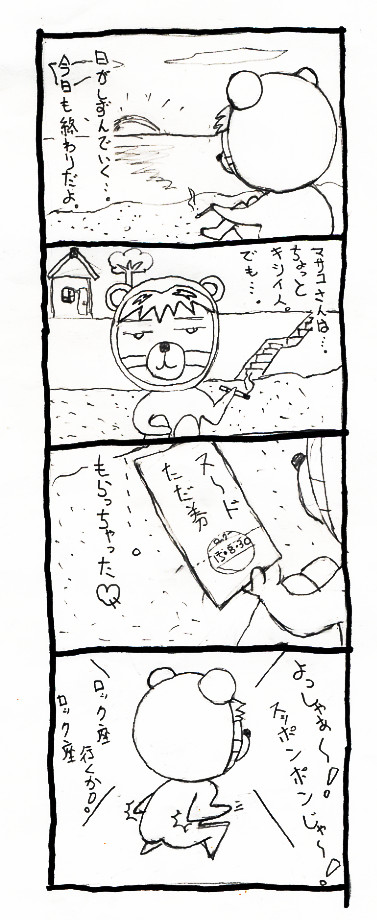 日がしずんでいく…。
今日も終わりだよ。
マサコさんは…。
ちょっと
キツイ人。
でも…。
ヌード
ただ券
15.8.30
もらっちゃった♡
よっしゃぁ〜!!
スッポンポンじゃ〜!!
ロック座
行くか!!
ロック座